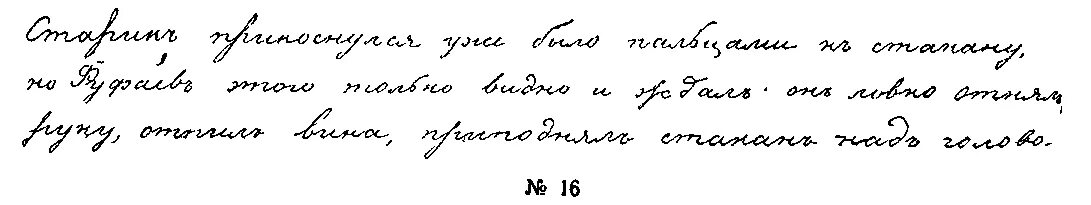 Старикъ прикоснулся уже было пальцами къ стакану,
но Фуфаевъ этого только видно и ждалъ: онъ ловко отнялъ
руку, отпилъ вина, приподнялъ стаканъ надъ голово-
№ 16